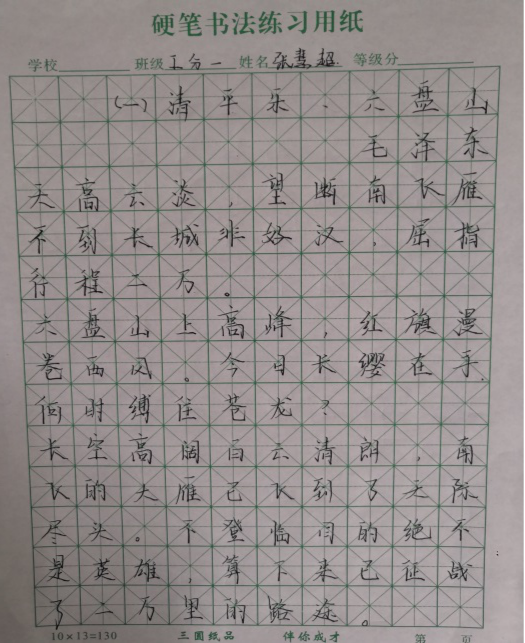 硬笔书法练习用纸
学校 班级 工分一 姓名 张慧超 等级分
(一)清平乐、六盘山
毛泽东
天高云淡，望断南飞雁
不到长城非好汉，屈指
行程二万。
六盘山上高峰，红旗漫
卷西风。今日长缨在手.
何时缚住苍龙？
长空高阔白云清朗，南
飞的大雁已飞到了天际
尽头。不登临目的绝不
是英雄 算下来已征战
了二万里的路途。
10×13=130 三圆纸品 伴你成才 第 页